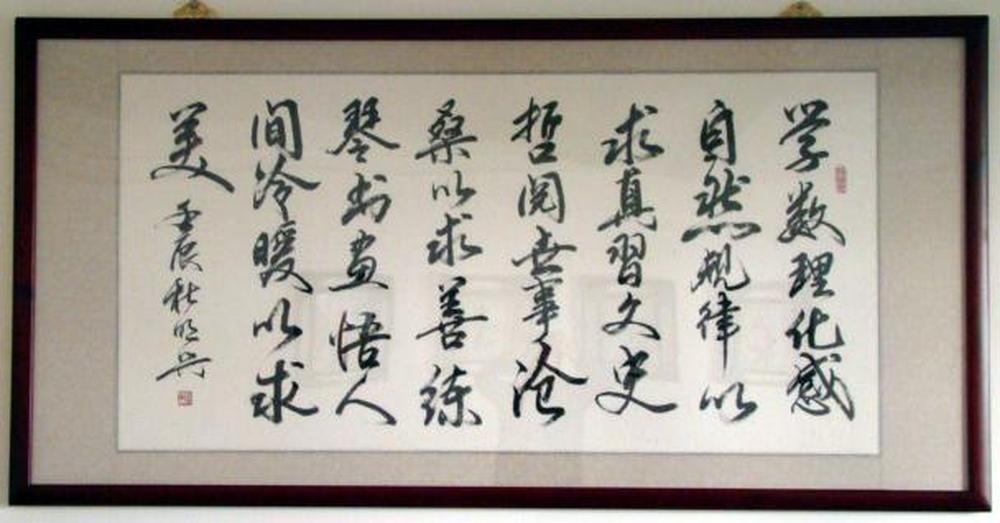 学数理化感
自然规律以
求真習文史
哲阅世事沧
桑以求善练
琴书画悟人
间冷暖以求
美
壬辰秋明兴